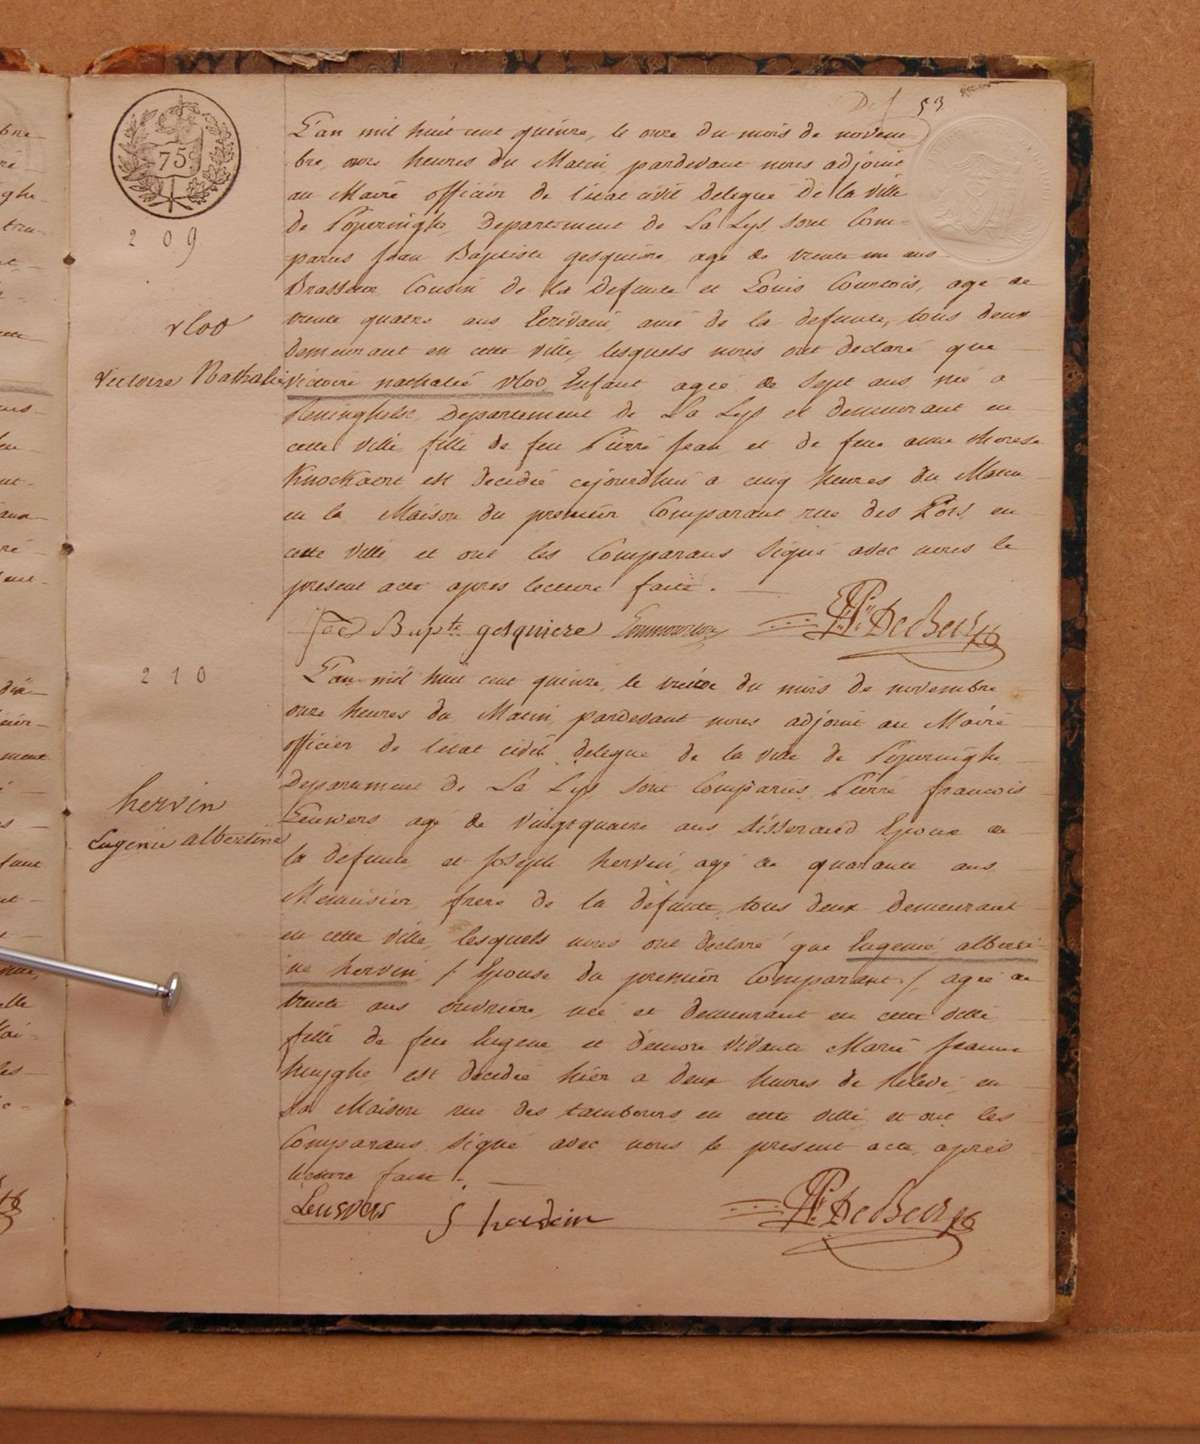 53
75
209
vloo
victoire Nathalie
L'an mil huit cent quinze, le onze du mois de novem
bre, onze heures du Matin, pardevant nous adjoint
au Maire officier de l'etat civil delegué de la ville
de Poperinghe, Departement de La Lys, sont Com-
parus Jean Baptiste gesquiere agé de trente un ans
Brasseur Cousin de la defunte et Louis Courtois, agé de
trente quatre ans Ecrivain, ami de la defunte, tous deux
demeurant en cette ville, lesquels nous ont declaré que
victoire nathalie vloo Enfant agée de sept ans née a
Reninghelst, Departement de La Lys et demeurant en
cette ville fille de feu Pierre Jean et de feue anne therese
Knockaert est decedée cejourd'hui a cinq heures du Matin
en la Maison du premier Comparant rue des Pots en
cette ville et ont les Comparans signé avec nous le
present acte apres lecture faite.
Jean Bapte gesquiere DeBeck
210
hervin
Eugenie albertine
L'an mil huit cent quinze, le treize du mois de novembre
onze heures du Matin, pardevant nous adjoint au Maire
officier de l'état civil delegué de la ville de Poperinghe
Departement de La Lys sont Comparus Pierre francois
Leuwers agé de vingt quatre ans tisserand Epoux de
la defunte et Joseph hervin, agé de quarante ans
Menuisier, frere de la defunte, tous deux demeurant
en cette ville, lesquels nous ont declaré que Eugenie alberti
ne hervin / Epouse du premier Comparant / agée de
trente ans ouvriere, née et demeurant en cette ville
fille de feu Eugene et d'encore vivante Marie Jeanne
huyghe est decedée hier a deux heures de relevé, en
sa Maison rue des tambours en cette ville et ont les
Comparans signé avec nous le present acte, apres
lecture faite.
Leuwers J hervin DeBeck